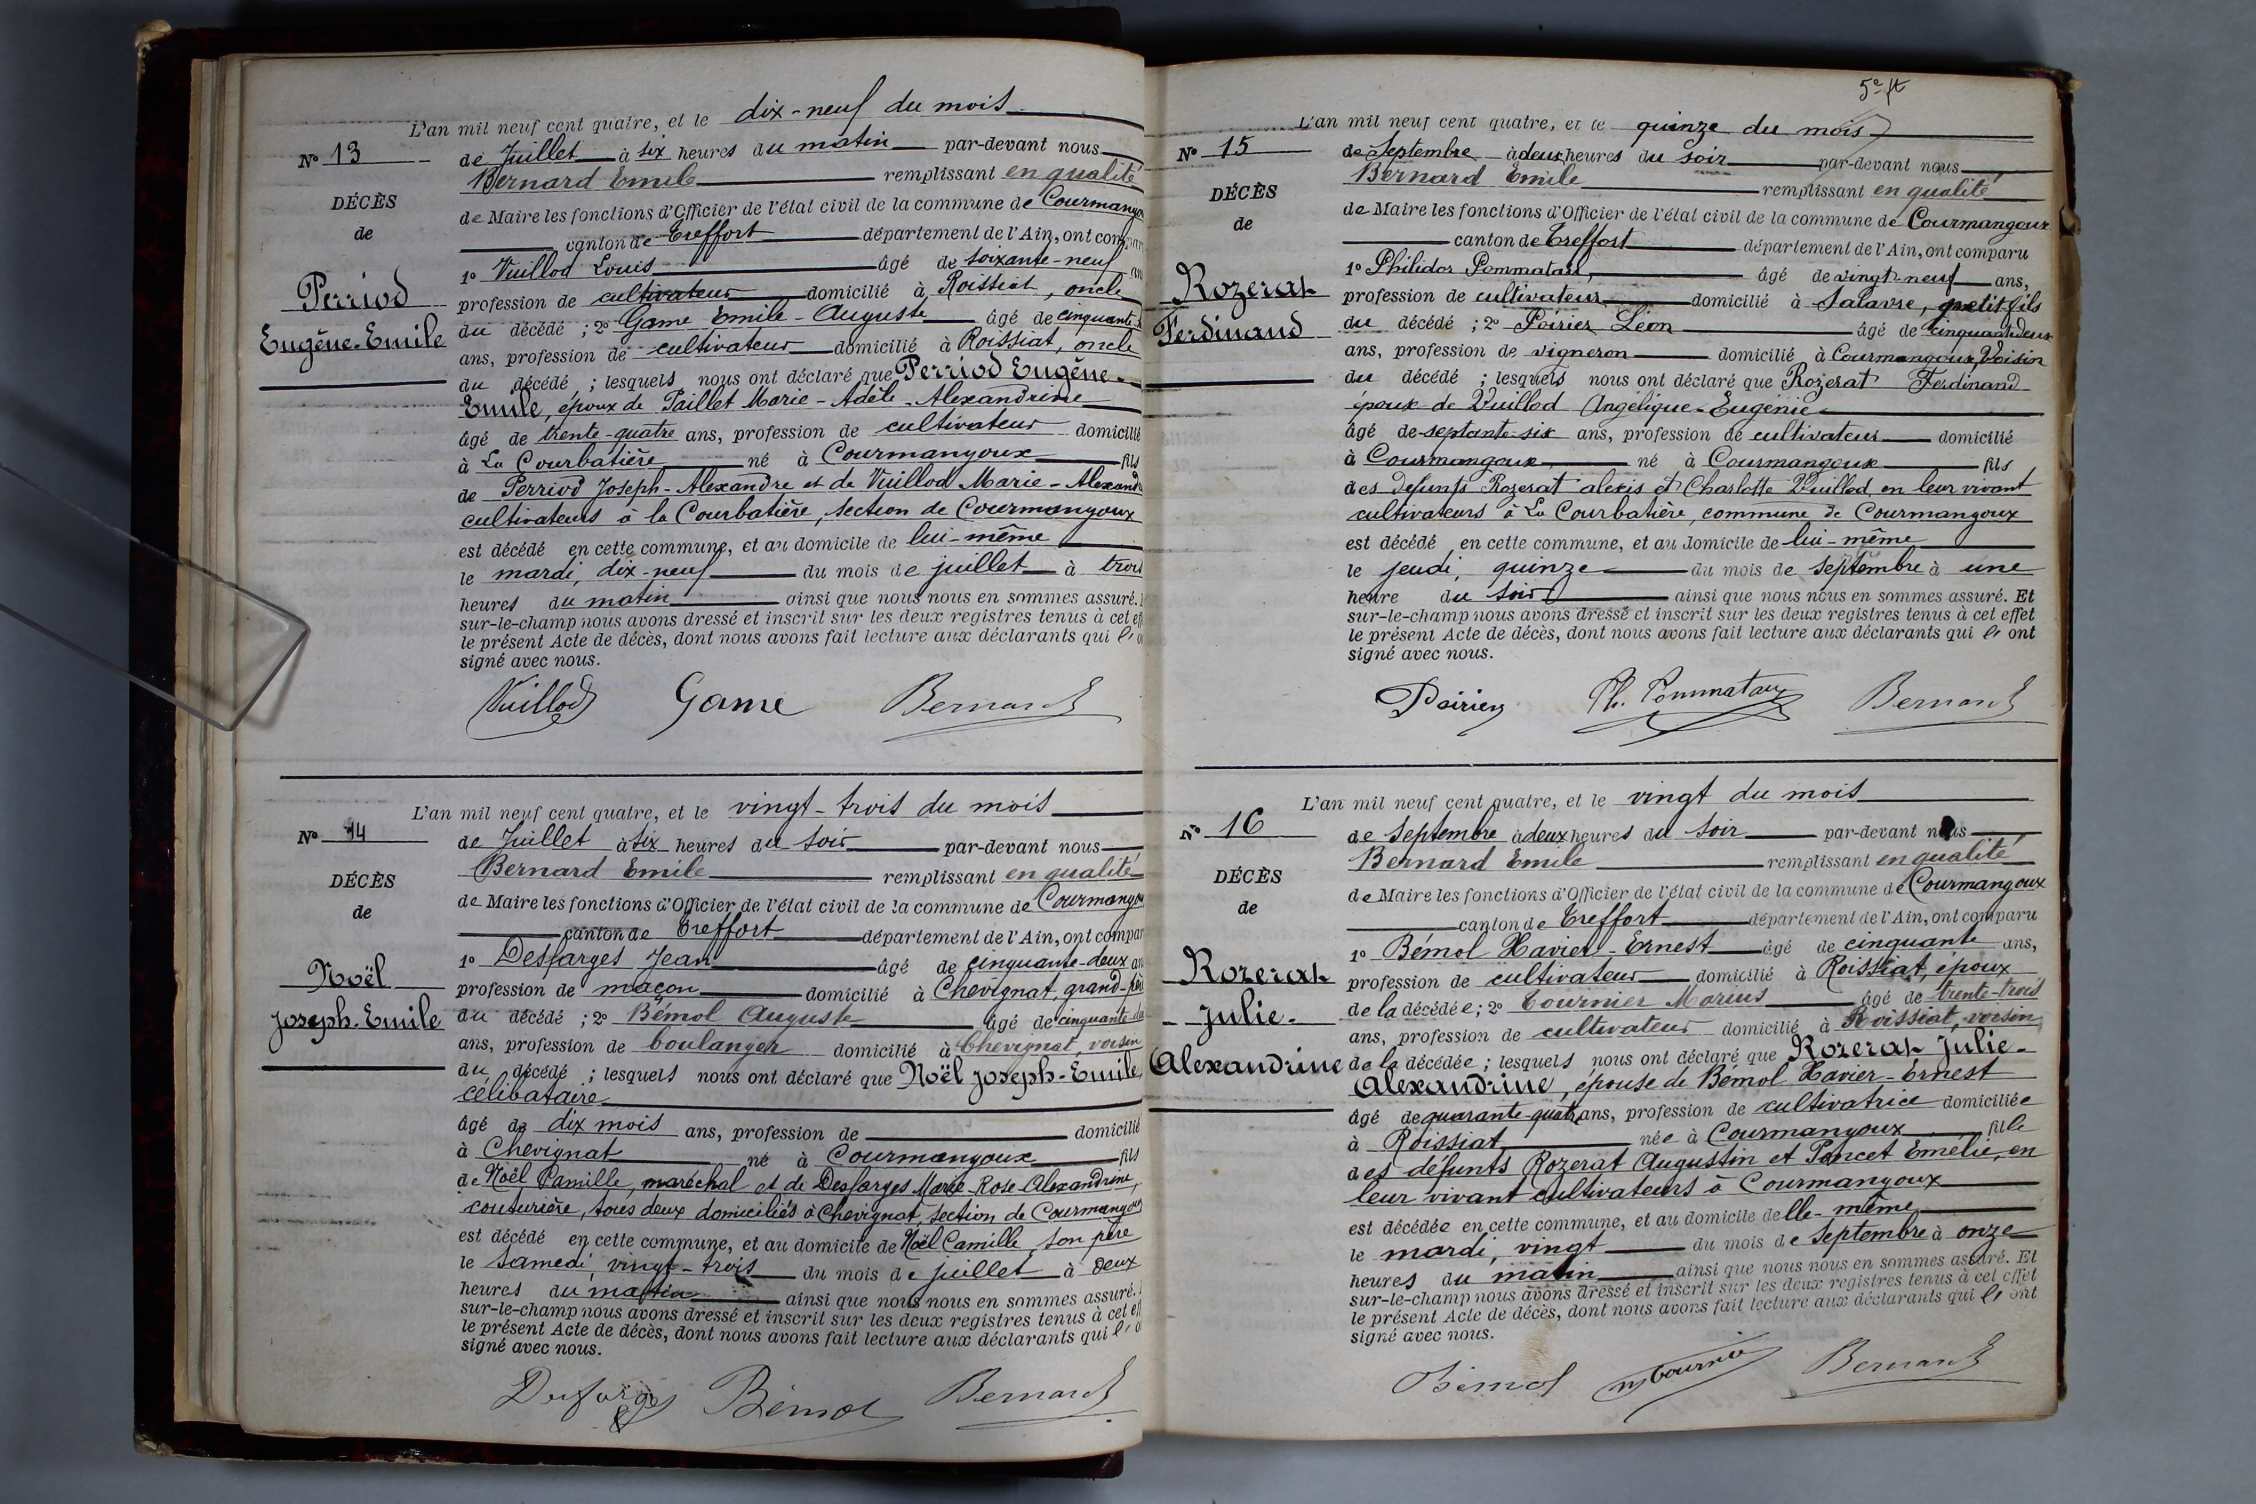 L'an mil neuf cent quatre, et le dix-neuf du mois
N° 13
de Juillet à six heures du matin par-devant nous
Bernard Emile remplissant en qualité
DÉCÈS
de Maire les fonctions d'Officier de l'état civil de la commune de Courmangou
de
canton de Treffort département de l'Ain, ont compar
1° Vuillod Louis âgé de soixante-neuf an
Perriod
profession de cultivateur domicilié à Roissiat, oncle
Eugène-Emile
du décédé ; 2° Game Emile-Auguste âgé de cinquante
ans, profession de cultivateur domicilié à Roissiat, oncle
du décédé ; lesquels nous ont déclaré que Perriod Eugène-
Emile, époux de Paillet Marie-Adèle-Alexandrine
âgé de trente-quatre ans, profession de cultivateur domicilié
à La Courbatière né à Courmangoux fils
de Perriod Joseph-Alexandre et de Vuillod Marie-Alexand
cultivateurs à la Courbatière, section de Courmangoux
est décédé en cette commune, et au domicile de lui-même
le mardi, dix-neuf du mois de juillet à trois
heures du matin ainsi que nous nous en sommes assuré.
sur-le-champ nous avons dressé et inscrit sur les deux registres tenus à cet eff
le présent Acte de décès, dont nous avons fait lecture aux déclarants qui l'o
signé avec nous.
Vuillod Game Bernard
L'an mil neuf cent quatre, et le vingt-trois du mois
N° 14
de Juillet à six heures du soir par-devant nous
Bernard Emile remplissant en qualité
DÉCÈS
de Maire les fonctions d'Officier de l'état civil de la commune de Courmangou
de
canton de Treffort département de l'Ain, ont compar
1° Desfarges Jean âgé de cinquante-deux an
Noël
profession de maçon domicilié à Chevignat, grand-père
Joseph-Emile
du décédé ; 2° Bémol Auguste âgé de cinquante-
ans, profession de boulanger domicilié à Chevignat, voisin
du décédé ; lesquels nous ont déclaré que Noël Joseph-Emile,
célibataire
âgé de dix mois ans, profession de domicilié
à Chevignat né à Courmangoux fils
de Noël Camille, maréchal et de Desfarges Marie-Rose-Alexandrine,
couturière, tous deux domiciliés à Chevignat, section de Courmangoux
est décédé en cette commune, et au domicile de Noël Camille, son père
le samedi, vingt-trois du mois de juillet à deux
heures du matin ainsi que nous nous en sommes assuré.
sur-le-champ nous avons dressé et inscrit sur les deux registres tenus à cet eff
le présent Acte de décès, dont nous avons fait lecture aux déclarants qui l'o
signé avec nous.
Desfarges Bémol Bernard
5e ft
L'an mil neuf cent quatre, et le quinze du mois
N° 15
de Septembre à deux heures du soir par-devant nous
Bernard Emile remplissant en qualité
DÉCÈS
de Maire les fonctions d'Officier de l'état civil de la commune de Courmangoux
de
canton de Treffort département de l'Ain, ont comparu
1° Philidor Pommatau, âgé de vingt-neuf ans,
Rozerat
profession de cultivateur domicilié à Salavre, petit-fils
Ferdinand
du décédé ; 2° Poirier Léon âgé de cinquante deux
ans, profession de vigneron domicilié à Courmangoux, Voisin
du décédé ; lesquels nous ont déclaré que Rozerat Ferdinand
époux de Vuillod Angélique-Eugénie
âgé de septante-six ans, profession de cultivateur domicilié
à Courmangoux né à Courmangoux fils
des defunts Rozerat alexis et Charlotte Vuillod, en leur vivant
cultivateurs à La Courbatière, commune de Courmangoux
est décédé en cette commune, et au domicile de lui-même
le jeudi, quinze du mois de septembre à une
heure du soir ainsi que nous nous en sommes assuré. Et
sur-le-champ nous avons dressé et inscrit sur les deux registres tenus à cet effet
le présent Acte de décès, dont nous avons fait lecture aux déclarants qui l' ont
signé avec nous.
Poirier Ph. Pommatau Bernard
L'an mil neuf cent quatre, et le vingt du mois
N° 16
de Septembre à deux heures du soir par-devant nous
Bernard Emile remplissant en qualité
DÉCÈS
de Maire les fonctions d'Officier de l'état civil de la commune de Courmangoux
de
canton de Treffort département de l'Ain, ont comparu
1° Bémol Xavier-Ernest âgé de cinquante ans,
Rozerat
profession de cultivateur domicilié à Roissiat, époux
Julie-
de la décédée ; 2° Tournier Marius âgé de trente-trois
ans, profession de cultivateur domicilié à Roissiat, voisin
Alexandrine
de la décédée ; lesquels nous ont déclaré que Rozerat Julie-
Alexandrine, épouse de Bémol Xavier-Ernest
âgé de quarante-quatre ans, profession de cultivatrice domiciliée
à Roissiat née à Courmangoux fille
des défunts Rozerat Augustin et Poncet Emélie, en
leur vivant cultivateurs à Courmangoux
est décédée en cette commune, et au domicile delle-même
le mardi, vingt du mois de septembre à onze
heures du matin ainsi que nous nous en sommes assuré. Et
sur-le-champ nous avons dressé et inscrit sur les deux registres tenus à cet effet
le présent Acte de décès, dont nous avons fait lecture aux déclarants qui l' ont
signé avec nous.
Bémol M Tournier Bernard